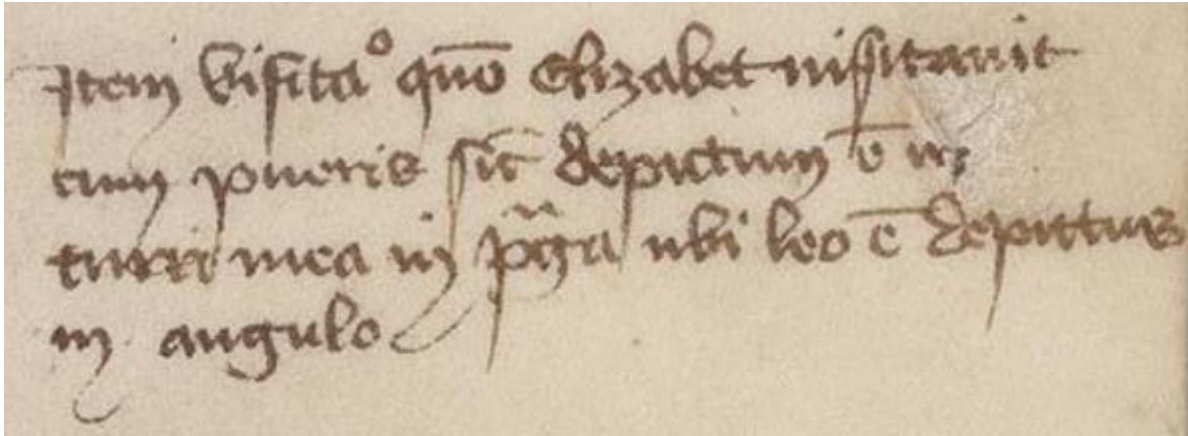 Item visitaº quō Elizabet uisitauit
cum pueris sic̄ depictum ē in
turri mea in pͣga ubi leo ē depictus
in angulo